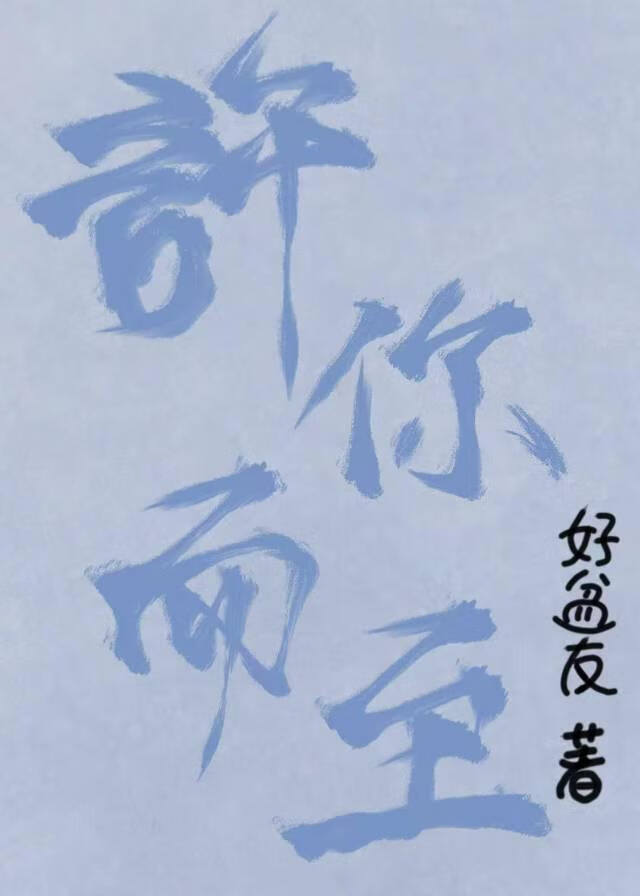 許你而至
好盆友 著